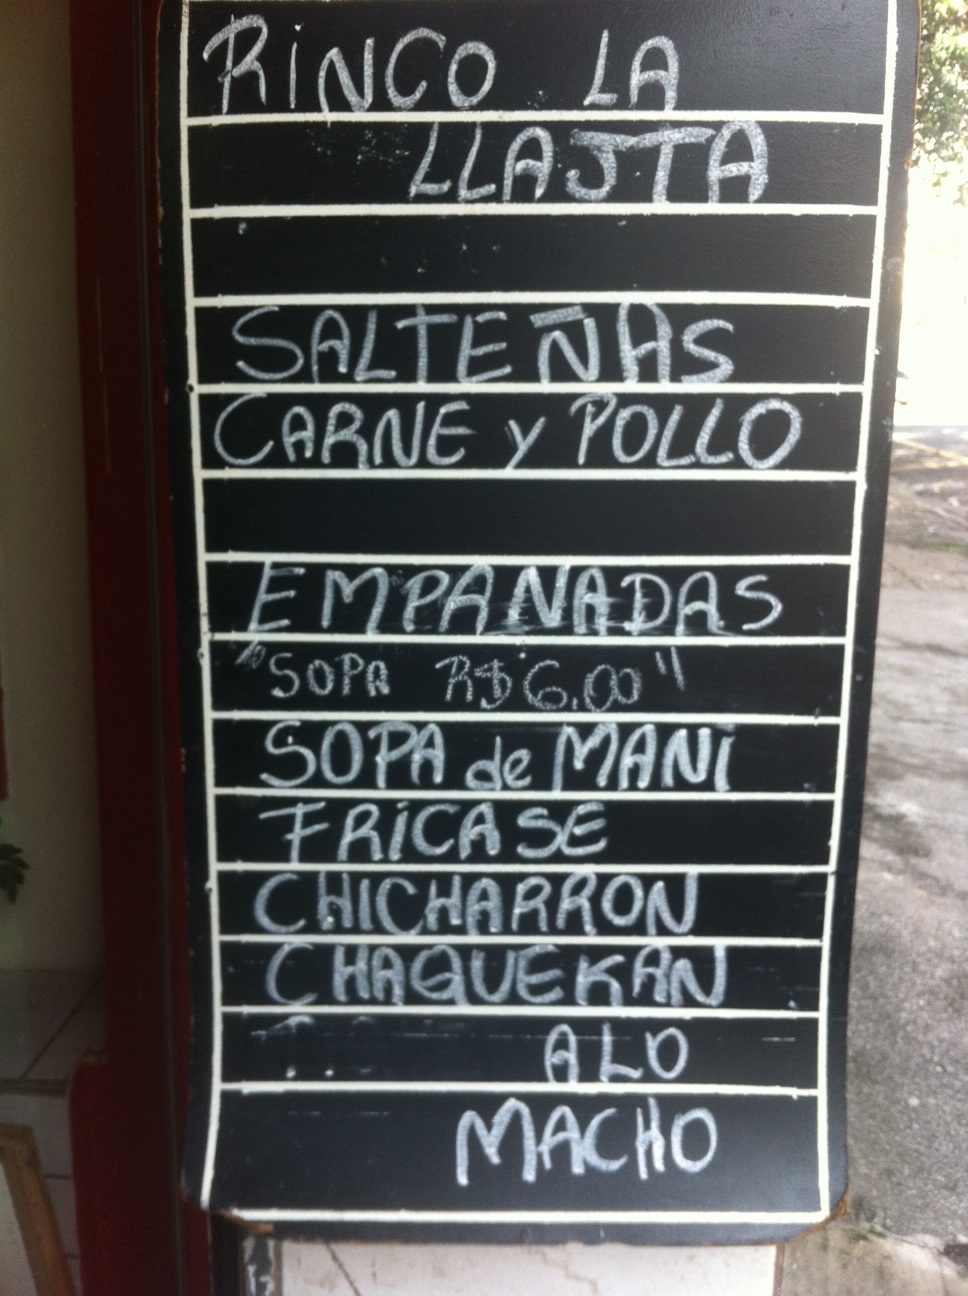 RINCO LA
LLAJTA
SALTEÑAS
CARNE y POLLO
EMPANADAS
"SOPA R$ 6.00"
SOPA de MANI
FRICASE
CHICHARRON
CHAQUEKAN
ALO
MACHO